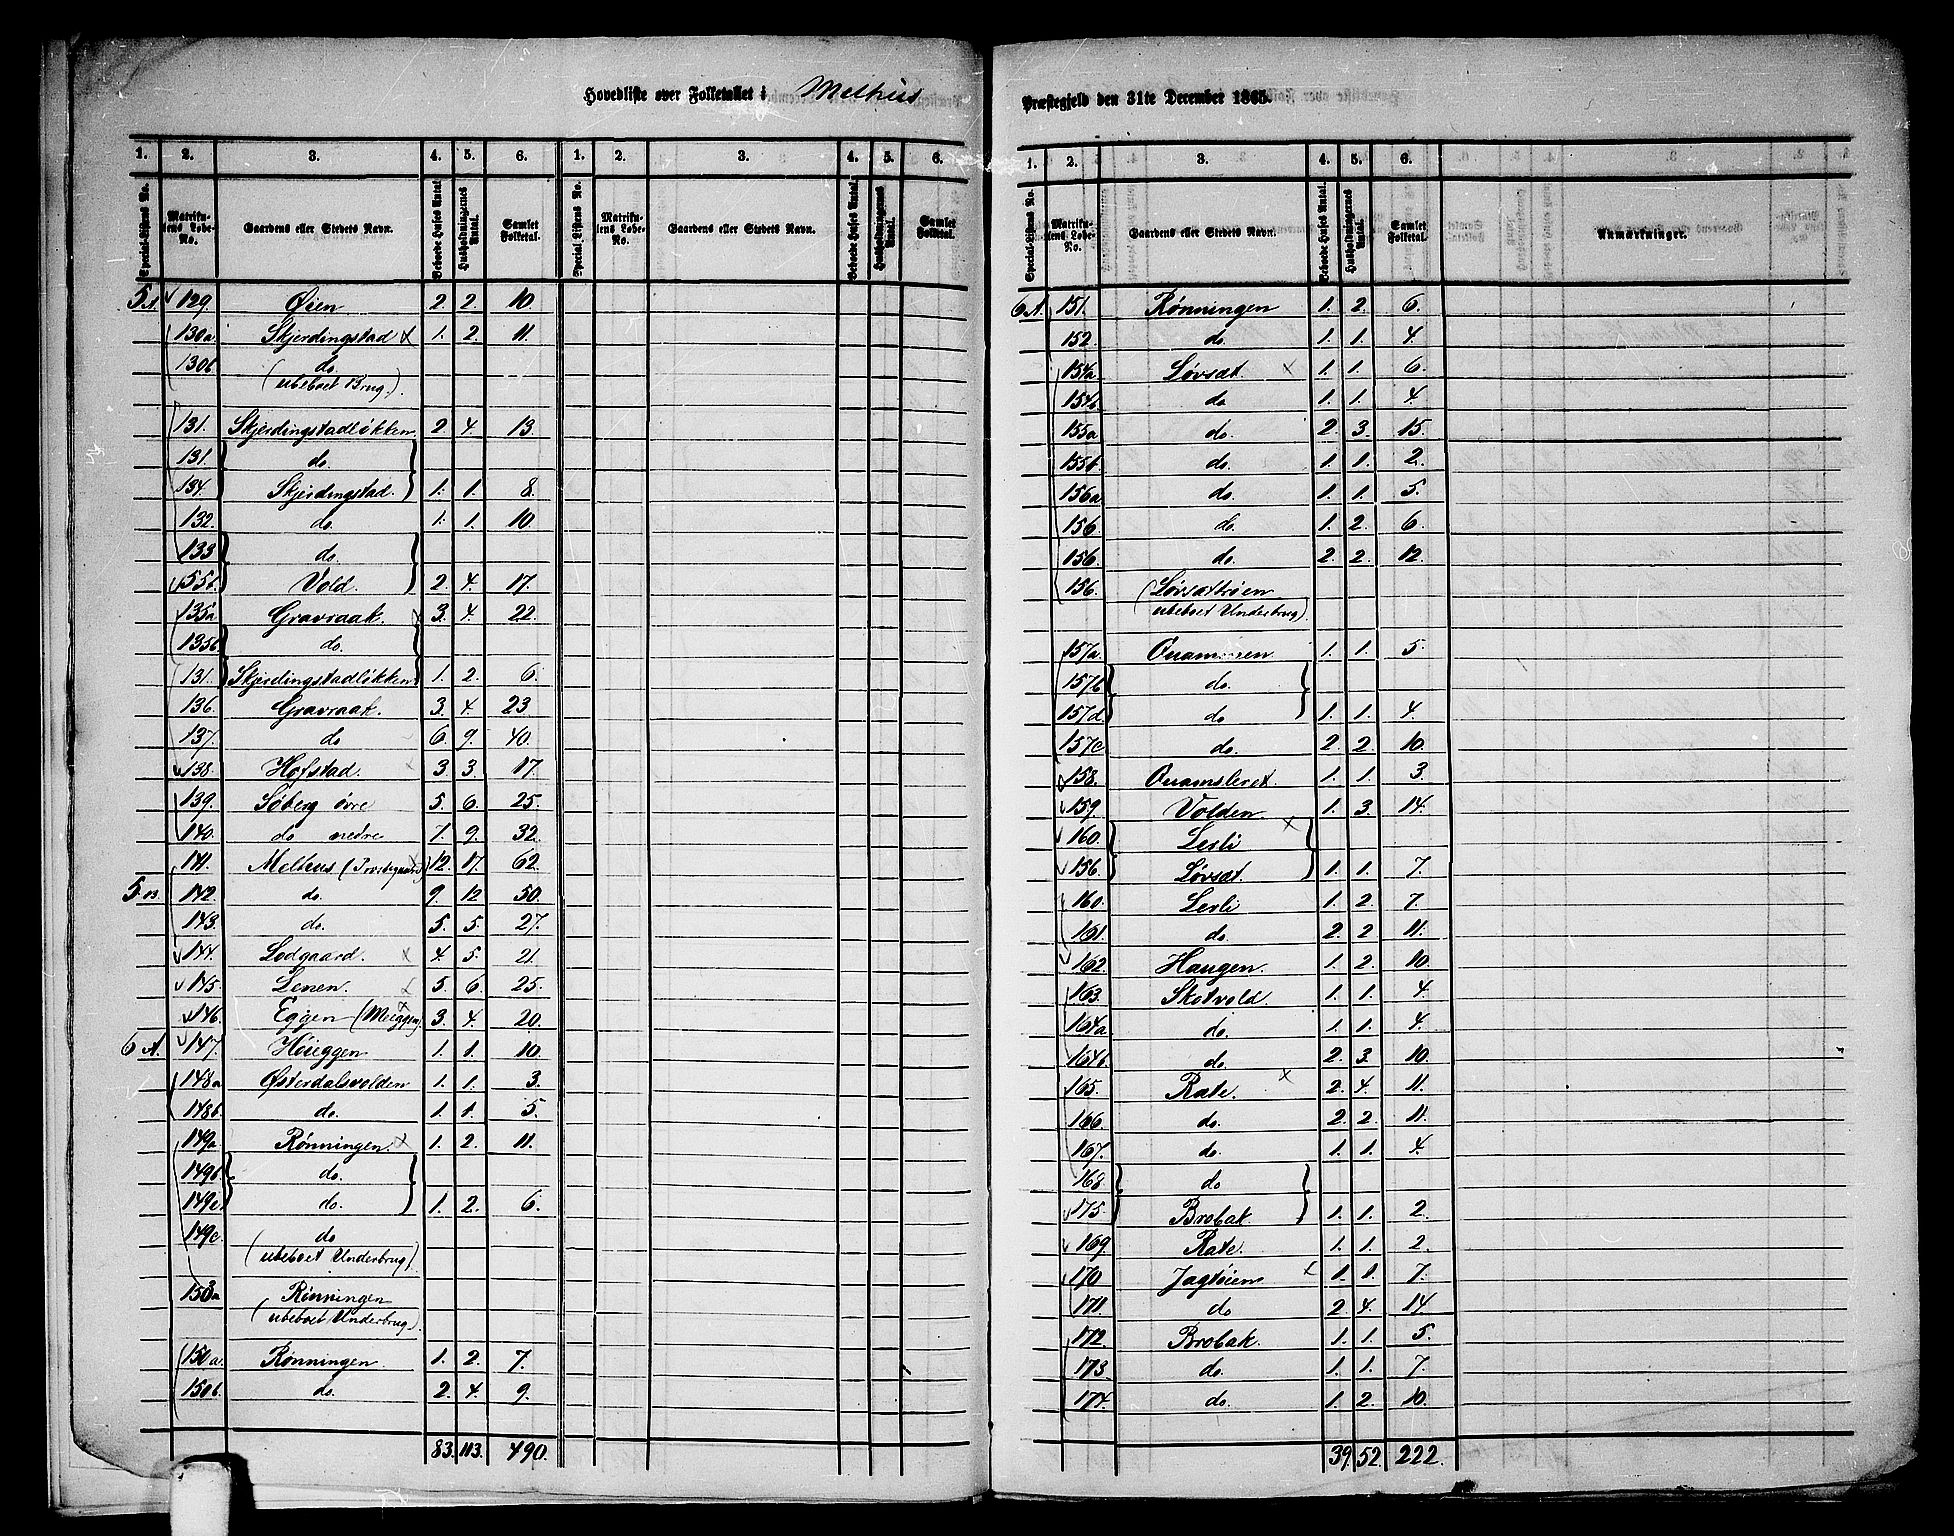 Hovedliste over Folketallet i Melhus
1. 2. 3. 4. 5. 6. 1. 2. 3. 4. 5. 6.
Special-Listens No. Matrikulens Løbe-No. Gaardens eller Stedets Navn. Beboede Huses Antal. Husholdningernes Antal. Samlet Folketal. Special-Listens No. Matrikulens Løbe-No. Gaardens eller Stedets Navn. Beboede Huses Antal. Husholdningernes Antal. Samlet Folketal.
5A 129. Øien 2. 2. 10.
130a Skjerdingstad x 1. 2. 11.
130b do.
(ubeboet Brug).
131. Skjerdingstadløkken 2 4. 13.
131. do.
134. Skjerdingstad. 1. 1. 8.
132. do. 1. 1. 10
133 do.
55b. Vold. 2. 4. 17.
135a Gravraak. x 3. 4. 22.
135b do.
131. Skjerdingstadløkken 1. 2 6.
136. Gravraak. 3. 4. 23
137. do 6. 9. 40.
138. Hofstad. x 3. 3. 17.
139. Søberg övre 5. 6. 25.
140. do nedre 7. 9. 32.
141. Melhus 12. 17. 62.
5B. 142. do. 9. 12 50.
143. do. 5. 5. 27.
144. Lodgaard. x 4. 5. 21.
145 Lenen. x 5. 6. 25.
146. Eggen (Meeggen) 3. 4. 20.
6A. 147. Høieggen 1. 1. 10.
148a Østerdalsvolden 1. 1. 3.
148b. do. 1. 1. 5.
149a Rønningen. x 1. 2. 11.
149b do.
149e do. 1. 2. 6.
149c. do
(ubeboet Underbrug).
150a Rønningen
(ubeboet Underbrug.)
150a. Rønningen 1. 2. 7.
150b. do. 2. 4. 9.
83. 113. 490.
Præstegjeld den 31te December 1865.
1. 2. 3. 4. 5. 6.
Special-Listens No. Matrikulens Løbe-No. Gaardens eller Stedets Navn. Beboede Huses Antal. Husholdningernes Antal. Samlet Folketal. Anmærkninger.
6A. 151. Rønningen 1. 2. 6.
152. do. 1. 1. 4.
154a Løvsæt. x 1. 1. 6.
154b. do 1. 1. 4.
155a do. 2. 3. 15.
155b do. 1. 1. 2.
156a do. 1. 1. 5.
156. do. 1. 2. 6.
156. do. 2. 2. 12.
156. (Løvsættrøen
ubeboet Underbrug)
157a 1. 1. 5.
157b do.
157d. do 1. 1. 4.
157c. do. 2. 2. 10.
158. Qvamsleret. 1. 1. 3.
159. Volden 1. 3. 14.
160. Lerli x
156. Løvsæt. 1. 1. 7.
160. Lerli 1. 2. 7.
161. do. 2. 2 11.
162. Haugen. 1. 2. 10.
163. Skotvold. 1. 1. 4.
164a do. 1. 1. 4.
164b. do. 2. 3. 10.
165. Rate. x 2. 4. 11.
166. do. 2. 2. 11.
167. do. 1. 1. 4.
168. do
175. Brobak. 1. 1. 2.
169. Rate. 1. 1. 2.
170 Jagtøien x 1. 1. 7.
171. do 2. 4. 14.
172. Brobak. 1. 1. 5.
173 do. 1. 1. 7.
174. do. 1. 2. 10.
39. 52. 222.